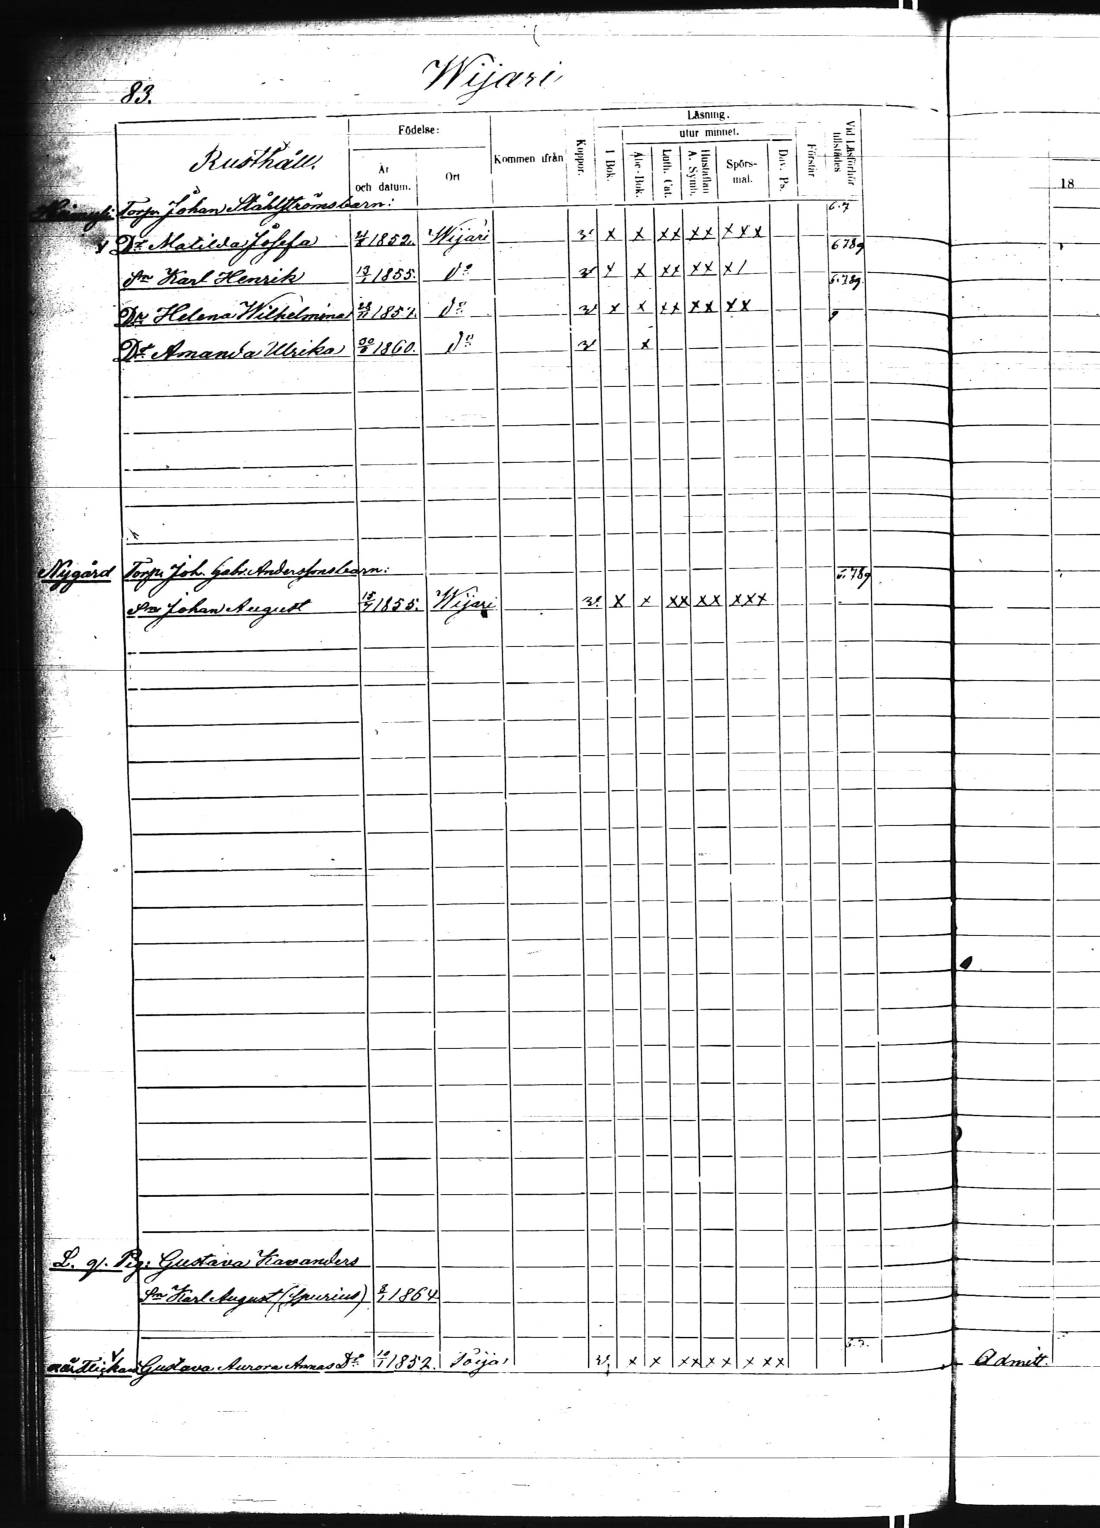 83.
Wijari
Rusthåll.
Födelse:
År och datum.
Ort
Kommen ifrån
Koppor.
Läsning.
I Bok.
utur minnet.
Abc-Bok.
Luth. Cat.
Hustaflan A. Symb.
Spörsmål.
Dav. Ps.
Förstår
Vid Läsförhör tillstädes
18
Torp: Johan Ståhlströmsbarn: 6.7
v Dr Matilda Josefa 1852. Wijari v x x xx xx xxx 6789
Sn Karl Henrik 1855. do v x x xx xx x/ 6.789.
Dr Helena Wilhelmina 1857. do v x x xx xx xx
Dr Amanda Ulrika 1860. do v x
Nygård Torp: Joh. Gabr. Anderssonsbarn: 6.789
Sn Johan August 1855. Wijari v. x x xx xx xxx
L. g. Pig: Gustava Kavanders
Sn Karl August (Spurius) 1864
Gustava Aurora Annas Dr 1852. v. x x xx xx x xx Admitt.